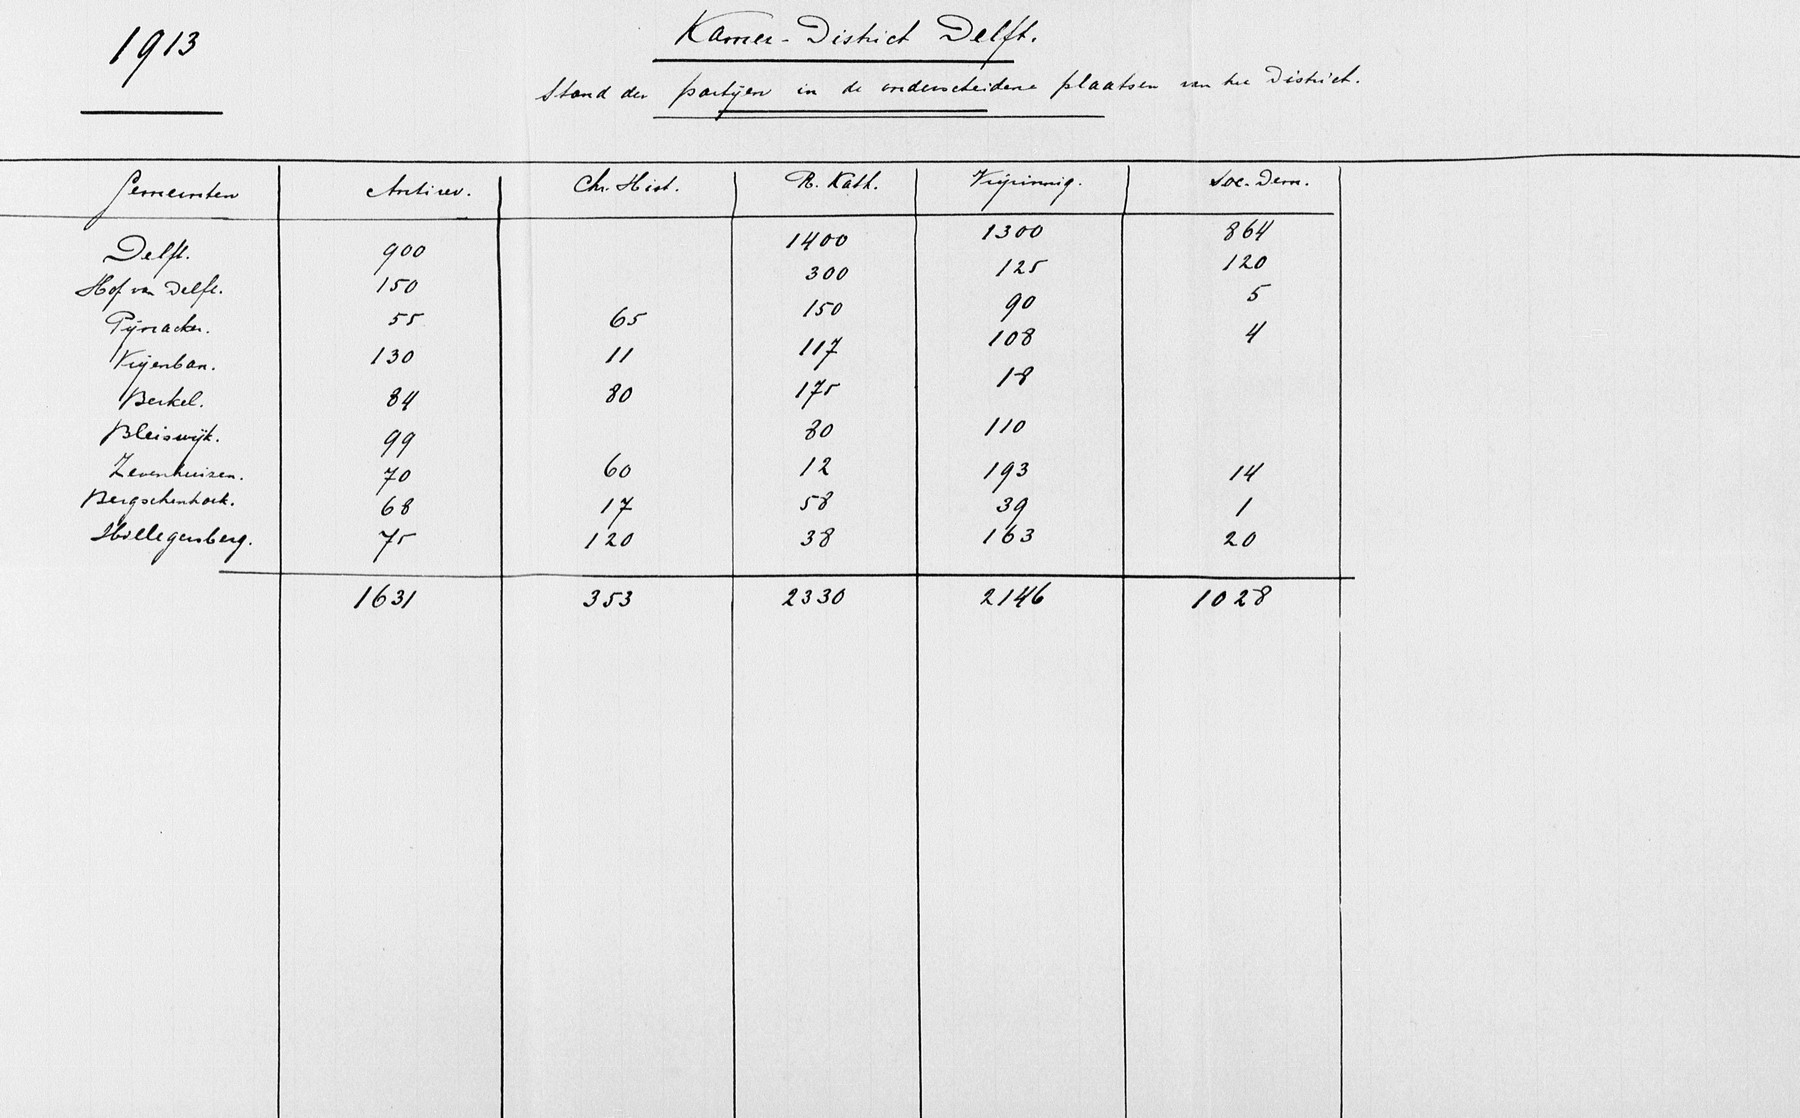 1913
Kamer-District Delft.
Stand der partijen in de onderscheidene plaatsen van het District.
Gemeenten Antirev. Chr. Hist. R. Kath. Vrijzinnig. Soc-Dem.
Delft. 900 1400 1300 864
Hof van Delft. 150 300 125 120
Pijnacker. 55 65 150 90 5
Vrijenban. 130 11 117 108 4
Berkel. 84 80 175 18
Bleiswijk. 99 80 110
Zevenhuizen. 70 60 12 193 14
Bergschenhoek. 68 17 58 39 1
Hillegersberg. 75 120 38 163 20
1631 353 2330 2146 1028